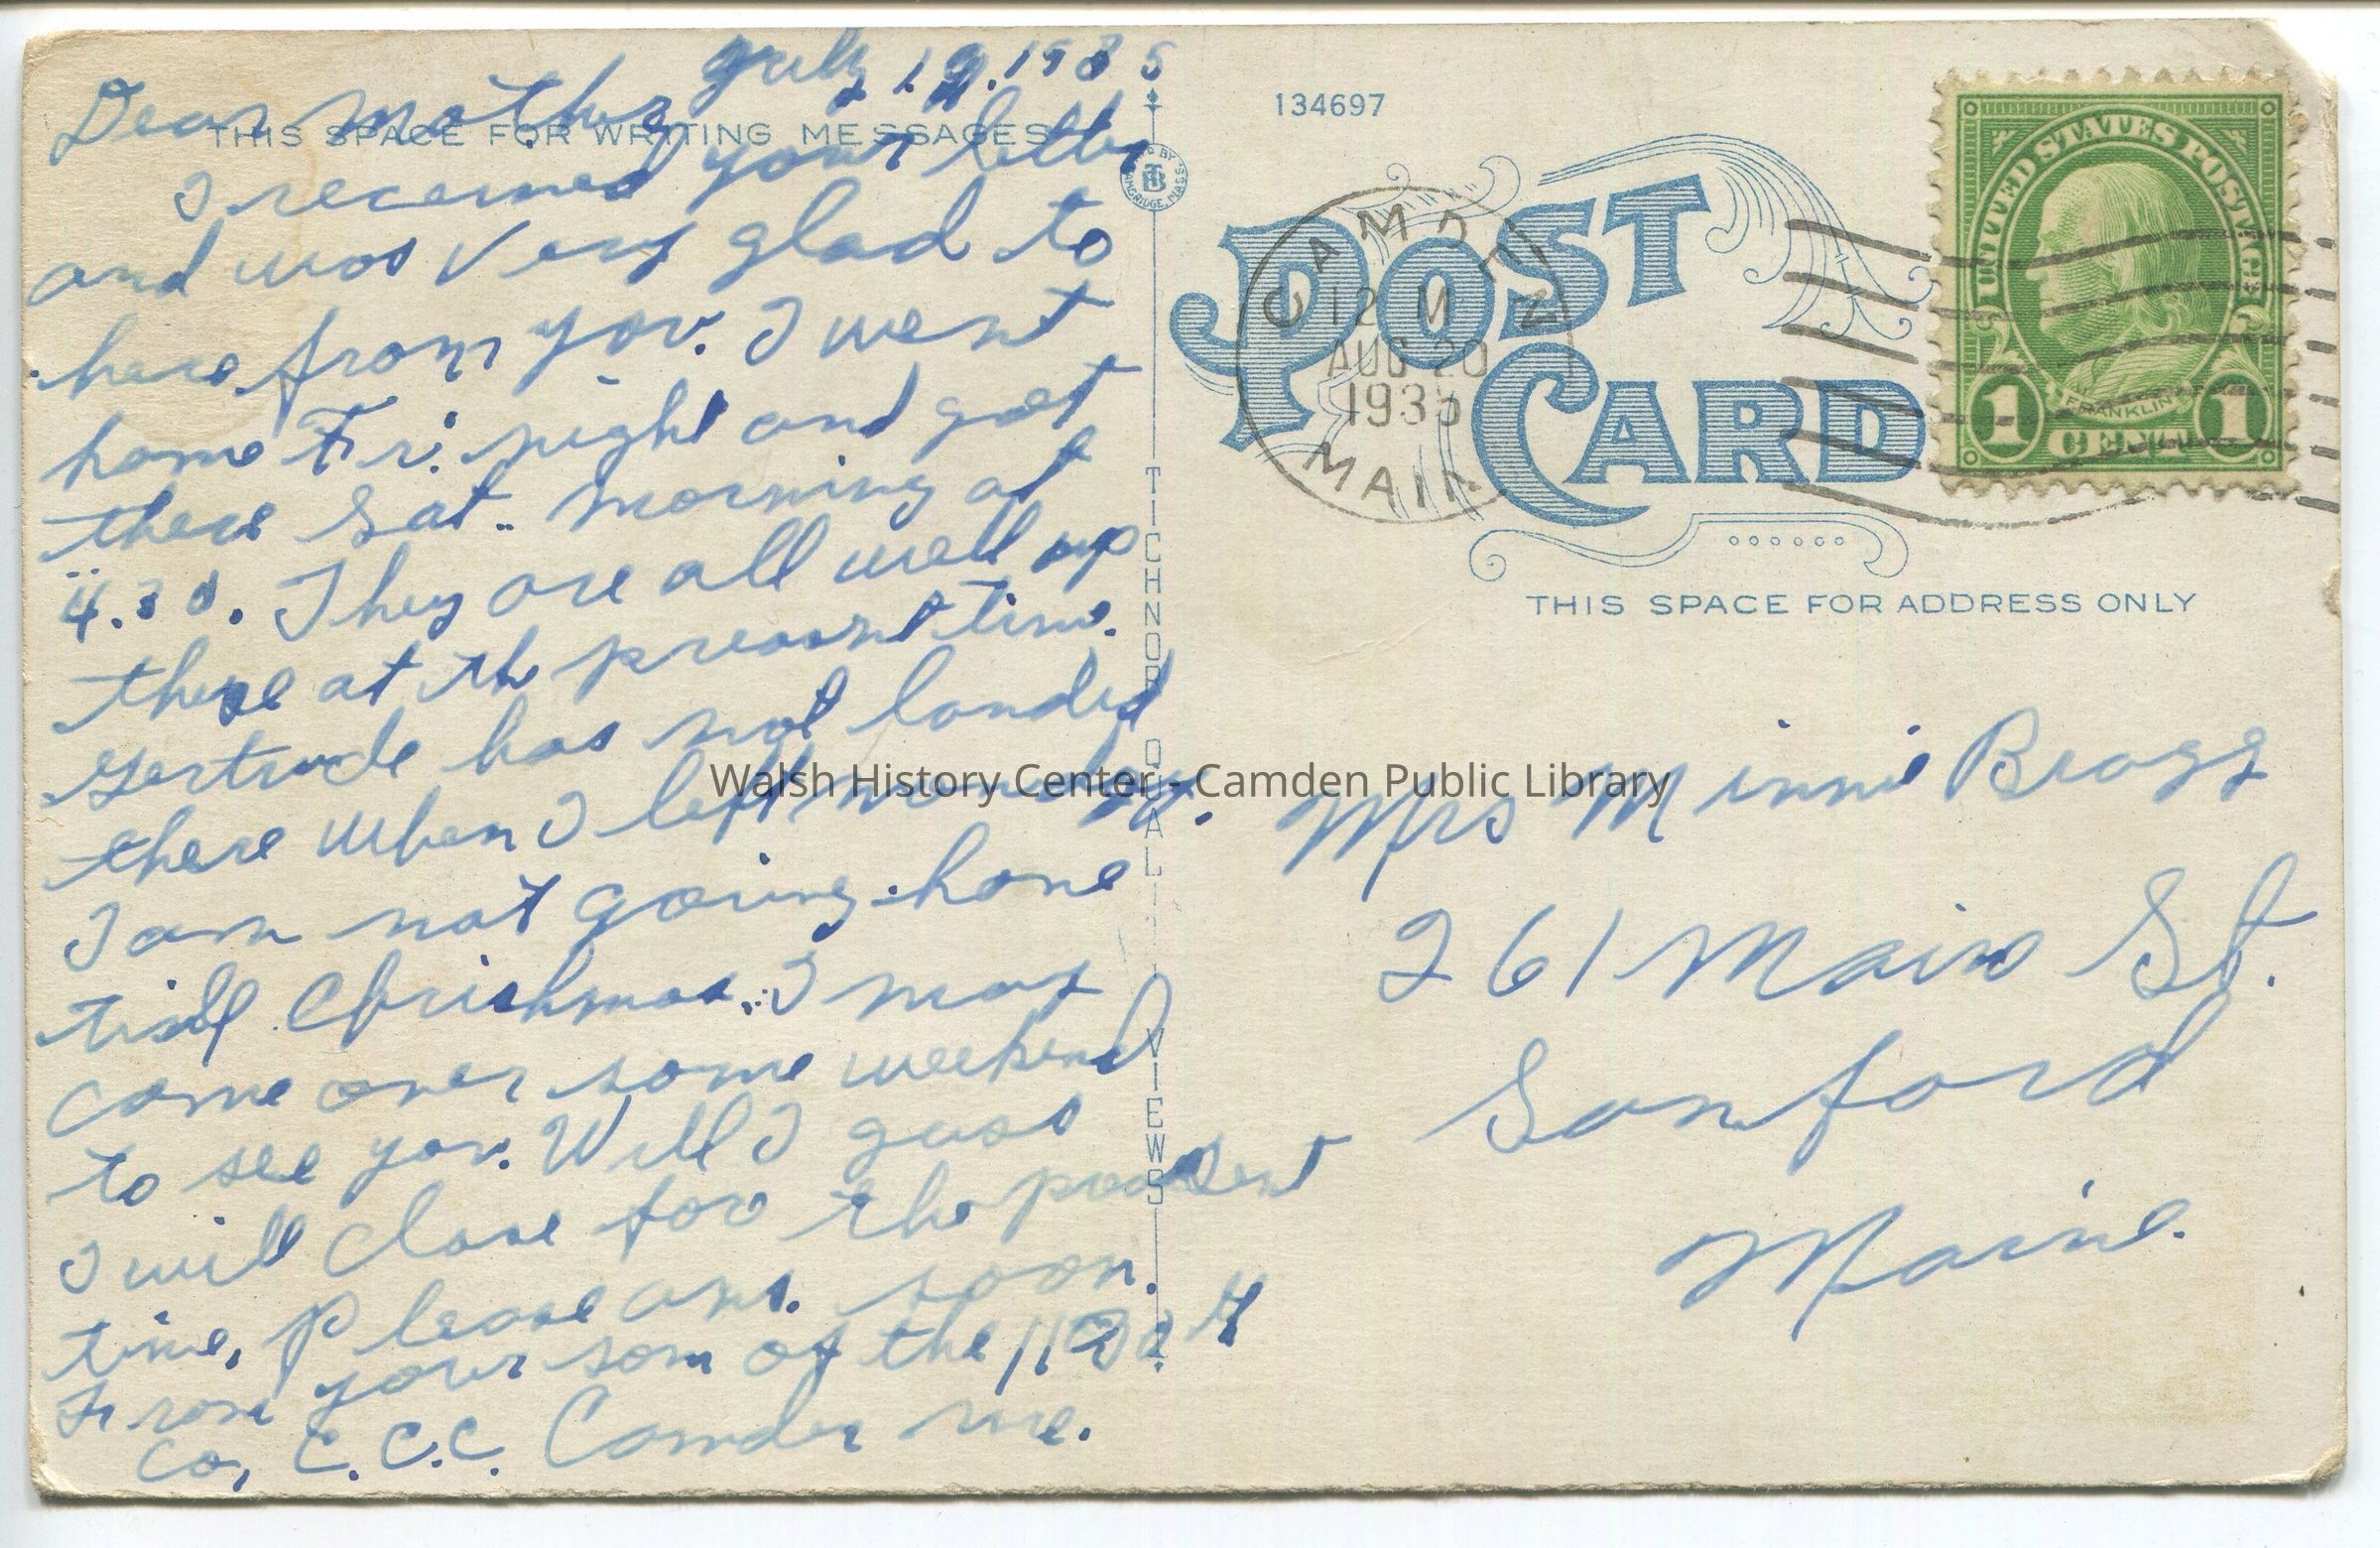 July 19. 1935
Dear Mother
THIS SPACE FOR WRITING MESSAGES
I received your letter
and was very glad to
here from you. I went
home Fri. night and got
there Sat. morning at
4.30. They are all well up
there at th present time.
Gertrude has not landed
there when I left
I am not going home
till Chrishmas. I may
come over some weekend
to see you. Will I guss
I will close for the present
time, Please ans. soon.
From your son of the
Co, C.C.C. Camden me.
TICHNOR QUALITY VIEWS
134697
POST CARD
CAMDEN
12 M
AUG 20
1935
MAINE
UNITED STATES POSTAGE
FRANKLIN
1 CENT 1
THIS SPACE FOR ADDRESS ONLY
Mrs Minnie Bragg
261 Main St.
Sanford
Maine.
Walsh History Center - Camden Public Library